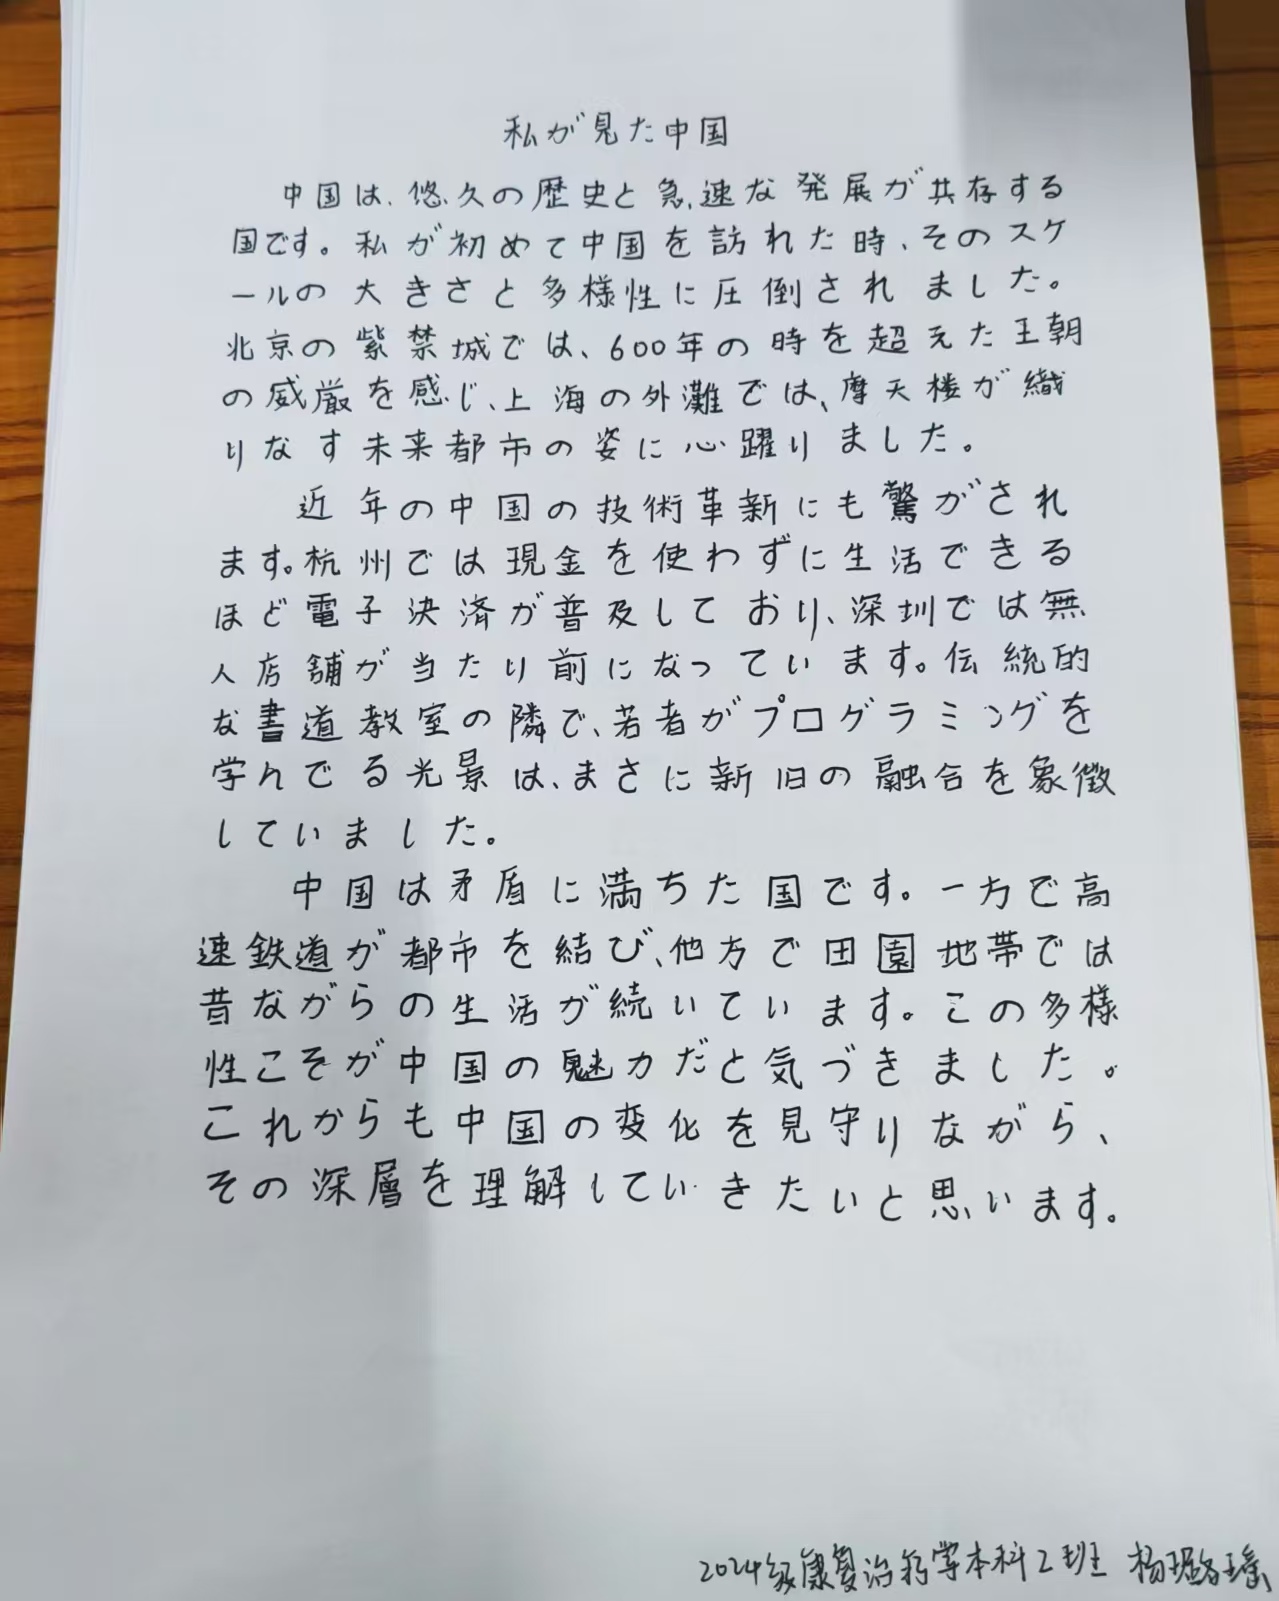 私が見た中国
中国は、悠久の歴史と急速な発展が共存する
国です。私が初めて中国を訪れた時、そのスケ
ールの大きさと多様性に圧倒されました。
北京の紫禁城では、600年の時を超えた王朝
の威厳を感じ、上海の外灘では、摩天楼が織
りなす未来都市の姿に心躍りました。
近年の中国の技術革新にも驚がされ
ます。杭州では現金を使わずに生活できる
ほど電子決済が普及しており、深圳では無
人店舗が当たり前になっています。伝統的
な書道教室の隣で、若者がプログラミングを
学んでる光景は、まさに新旧の融合を象徴
していました。
中国は矛盾に満ちた国です。一方で高
速鉄道が都市を結び、他方で田園地帯では
昔ながらの生活が続いています。この多様
性こそが中国の魅力だと気づきました。
これからも中国の変化を見守りながら、
その深層を理解していきたいと思います。
2024级康复治疗学本科2班 杨璐瑶